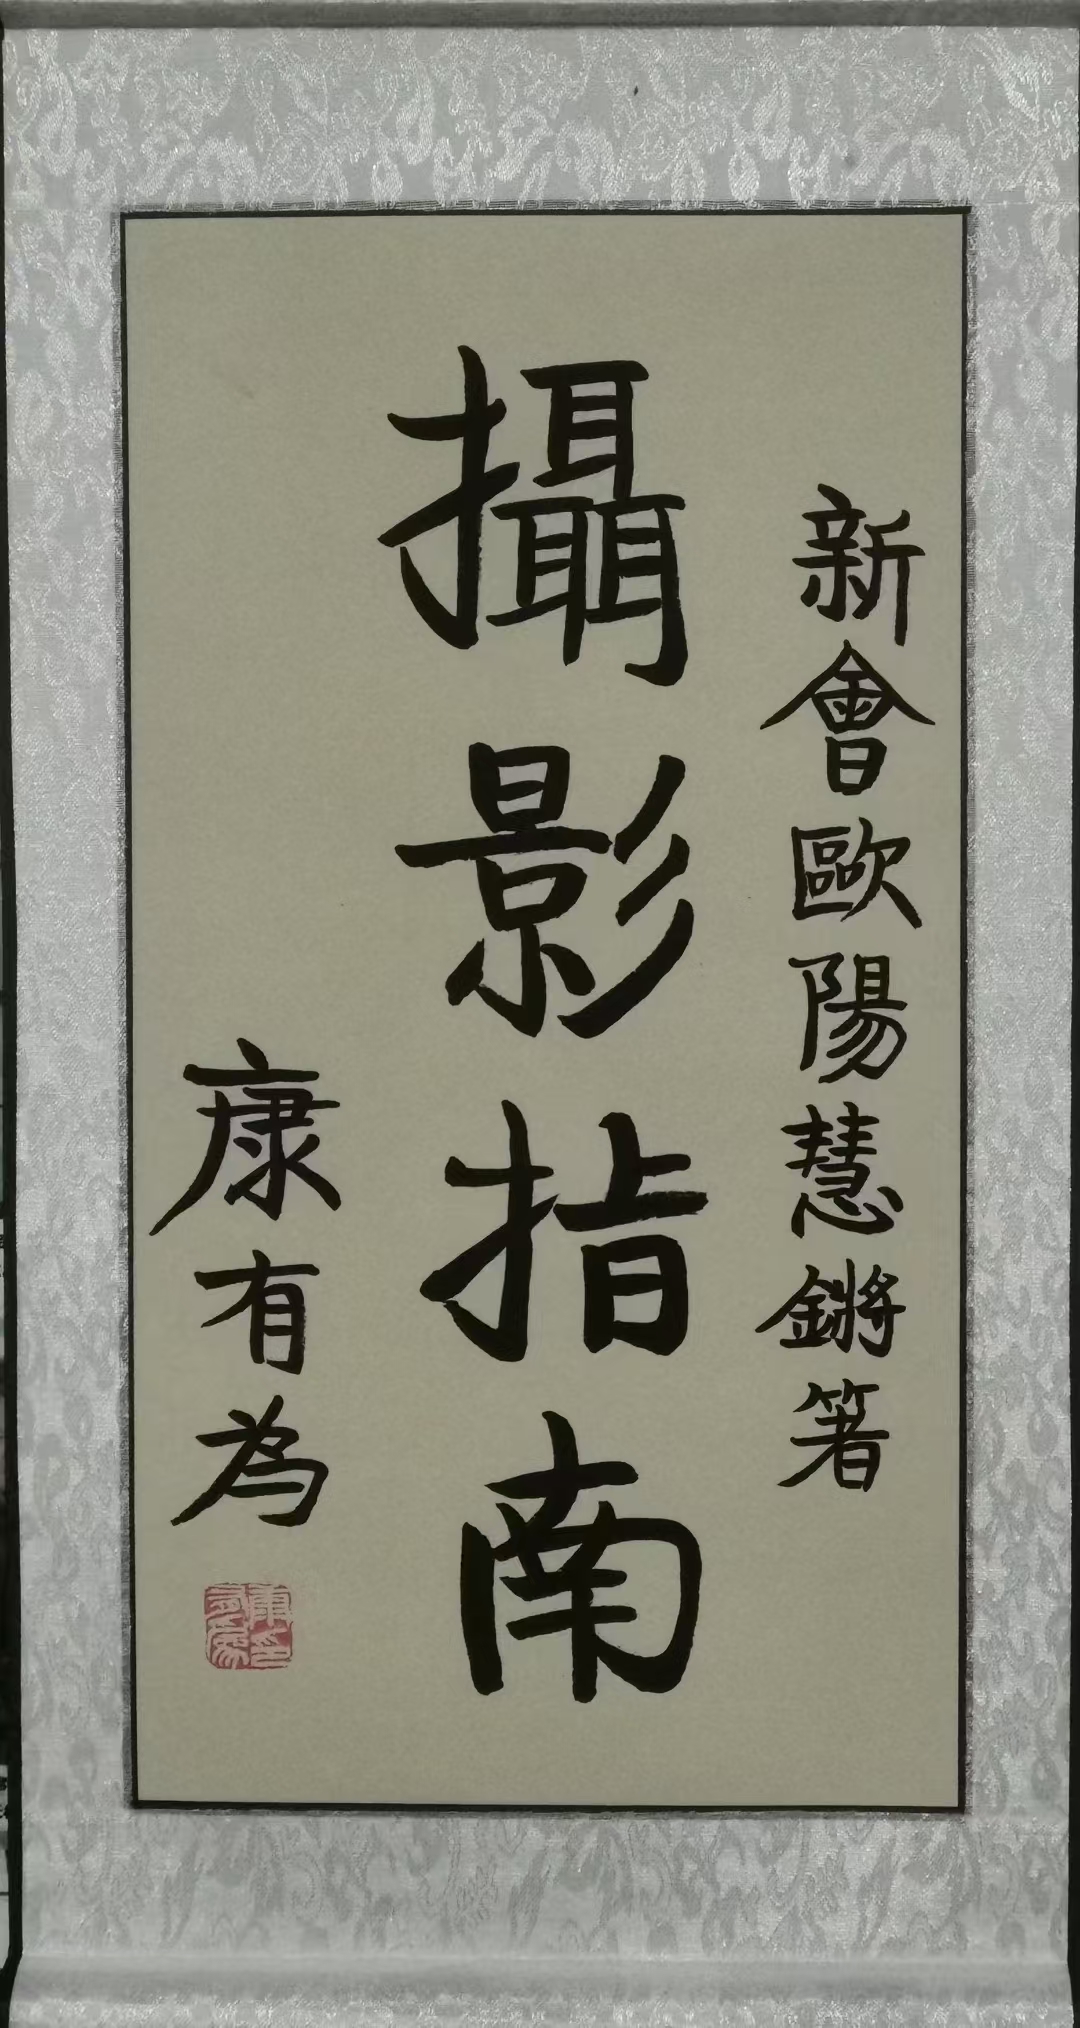 新會歐陽慧鏘著
攝影指南
康有為